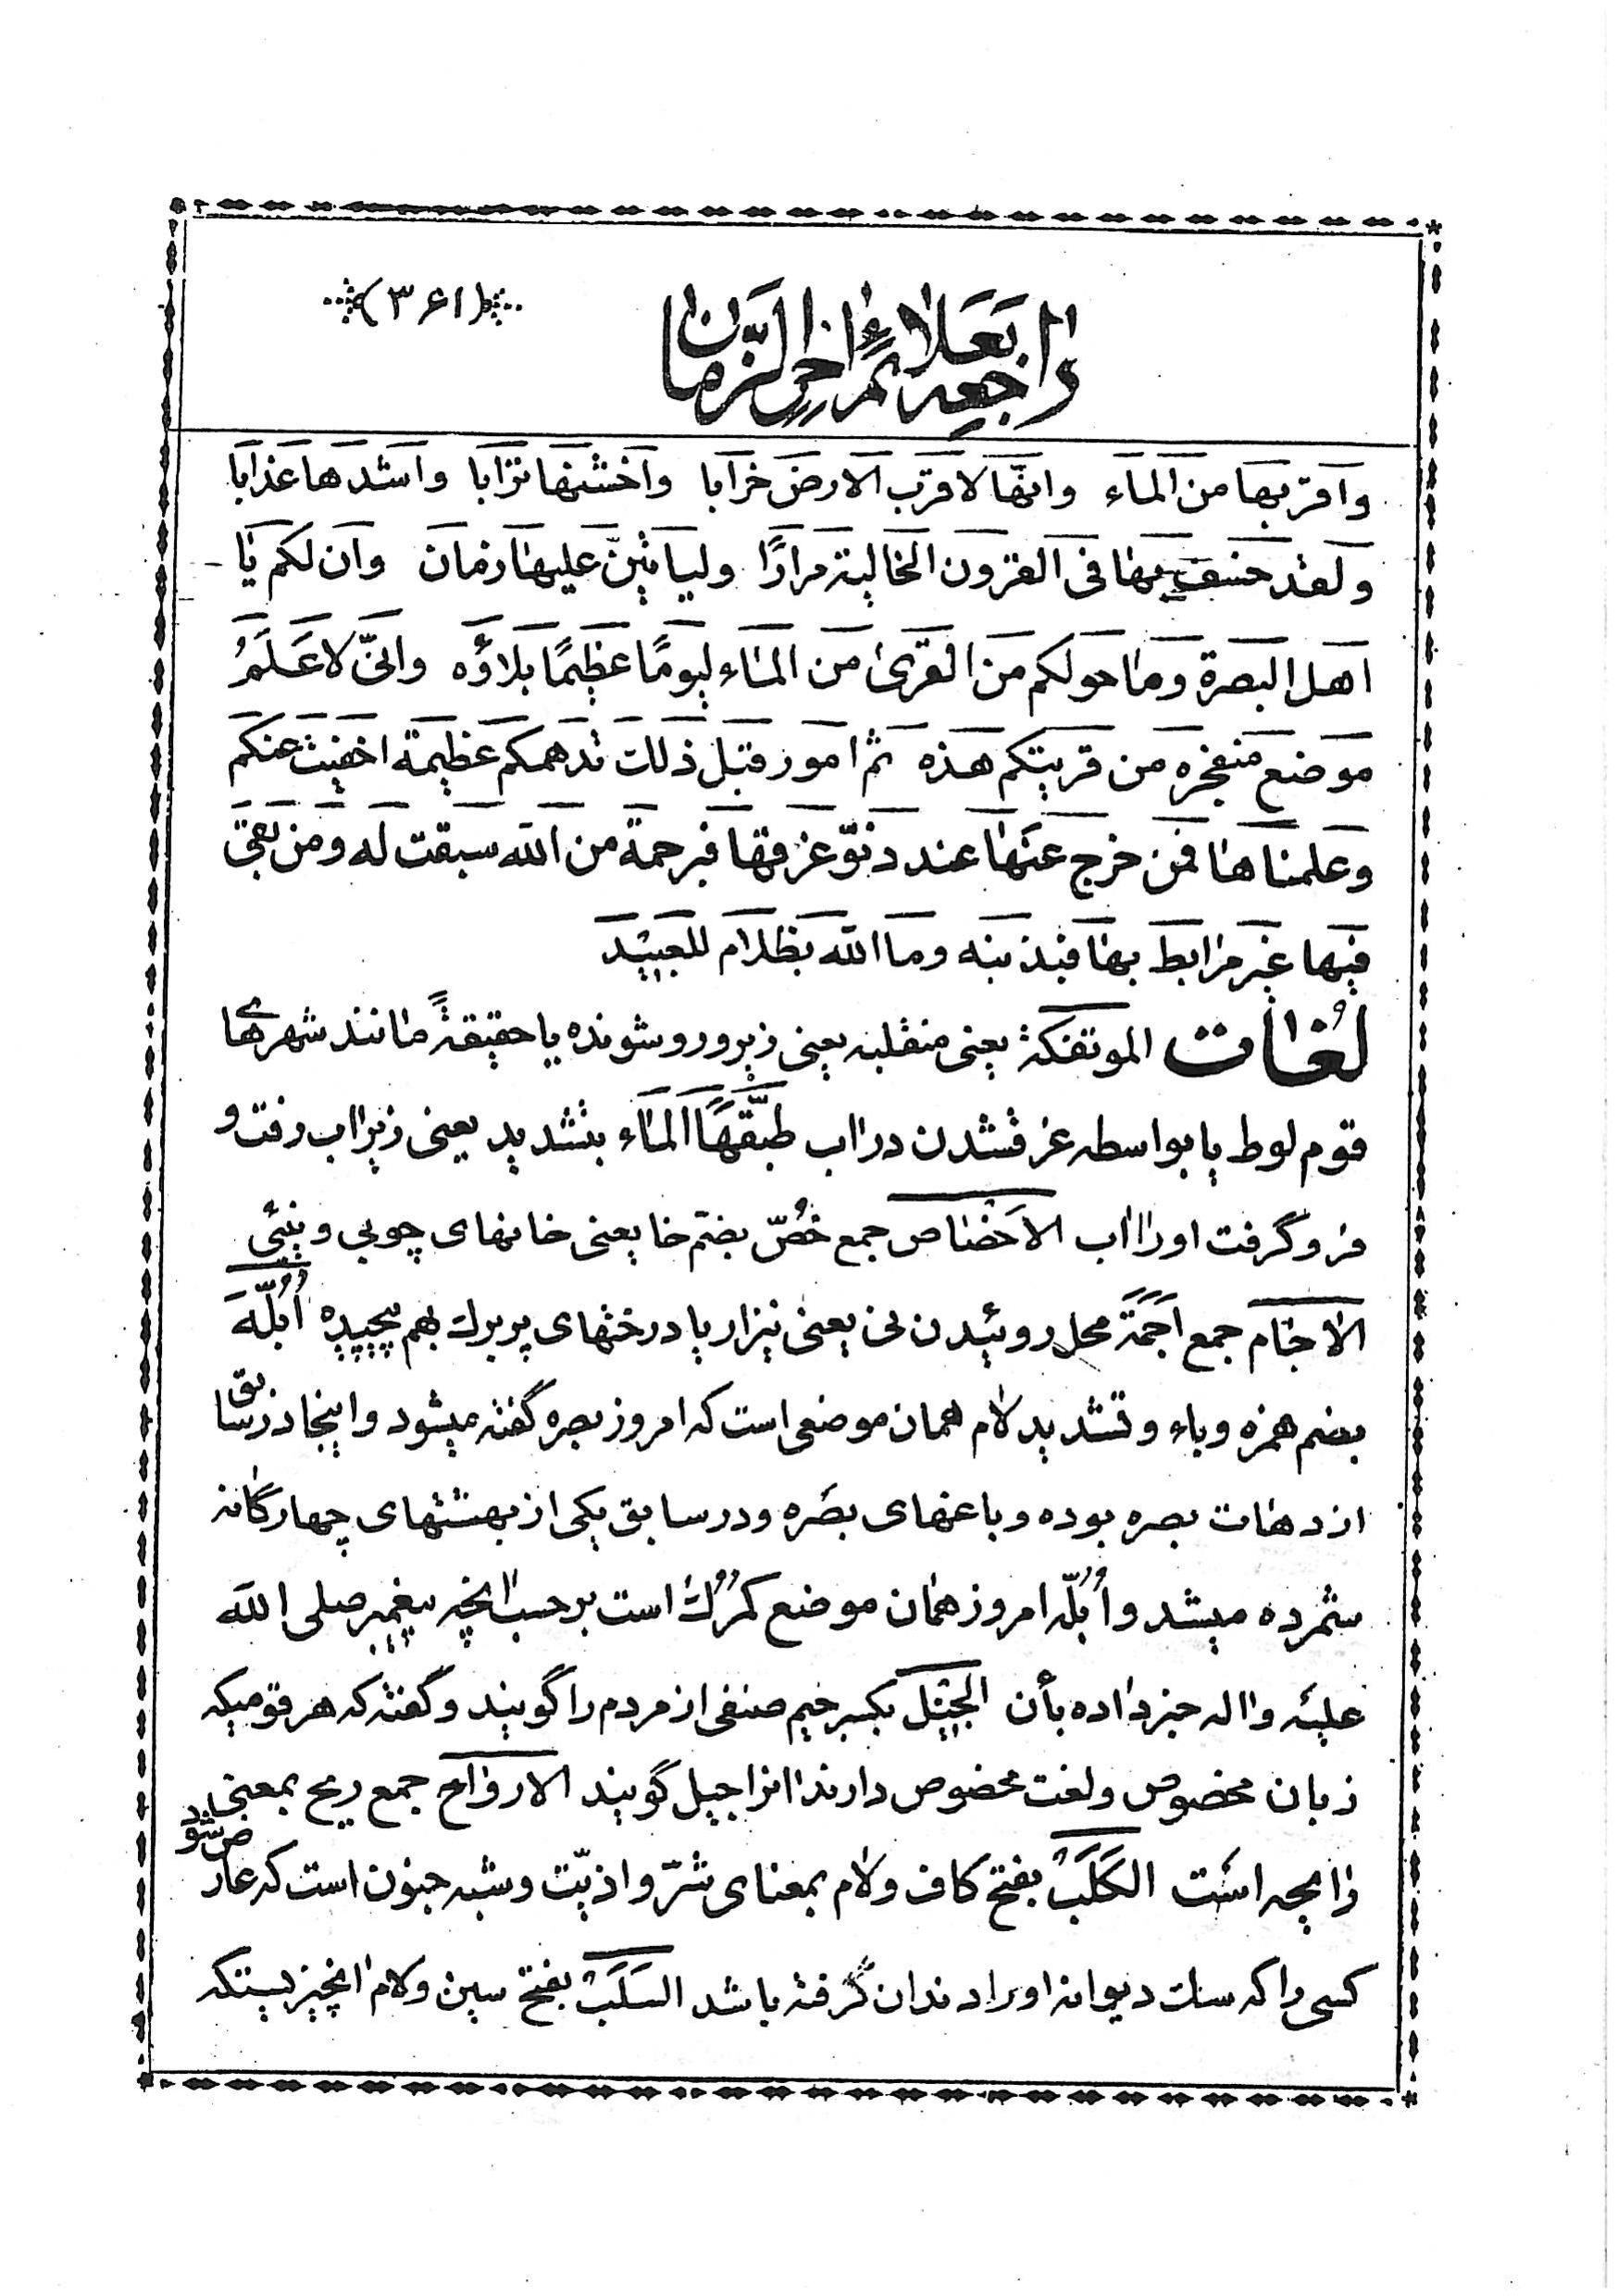 راجعه بعلائم اخر الزمان
(۳۶۱)
واقربها من الماء وانّها لاقرب الارض خرابا واخشنها ترابا واشدها عذابا
ولقد خسف بها فی القرون الخالیة مرارًا ولیاتینّ علیها زمان وان لکم یا
اهل البصرة وما حولکم من القری من الماء لیومًا عظیمًا بلاؤه وانّی لاعلمُ
موضع منفجره من قریتکم هذه ثم امور قبل ذلک تدهمکم عظیمة اخفیت عنکم
وعلمناها فمن خرج عنها عند دنوّ غرقها فبرحمة من الله سبقت له ومن بقی
فیها غیر مرابط بها فبذنبه وما الله بظلام للعبید
لُغات المؤتفکة یعنی منقلبه یعنی زیر و رو شونده یا حقیقةً مانند شهرهای
قوم لوط یا بواسطه غرقشدن دراب طبّقهَا الماء بتشدید یعنی زیراب رفت و
فرو گرفت او را اب الاخصاص جمع خُصّ بضم خا یعنی خانهای چوبی و نیی
الاجام جمع اَجَمَة محل روئیدن نی یعنی نیزار یا درختهای پر برک بهم پیچیده اُبُلّه
بضم همزه و باء و تشدید لام همان موضعی است که امروز بصره گفته میشود و اینجا در سابق
از دهات بصره بوده و باغهای بصره و در سابق یکی از بهشتهای چهارگانه
شمرده میشد و اُبُلّه امروز همان موضع کمرُک است بر حسب انچه پیغمبر صلی الله
علیه و اله خبر داده بأن الجیل بکسر جیم صنفی از مردم را گویند و گفته که هر قومیکه
زبان مخصوص و لغت مخصوص دارند انرا جیل گویند الارواح جمع ریح بمعنی
رایحه است الکَلَبُ بفتح کاف و لام بمعنای شرّ و اذیّت و شبه جنون است که عارض شود
کسی را که سک دیوانه او را دندان گرفته باشد السَلَبُ بفتح سین و لام انچیزیستکه